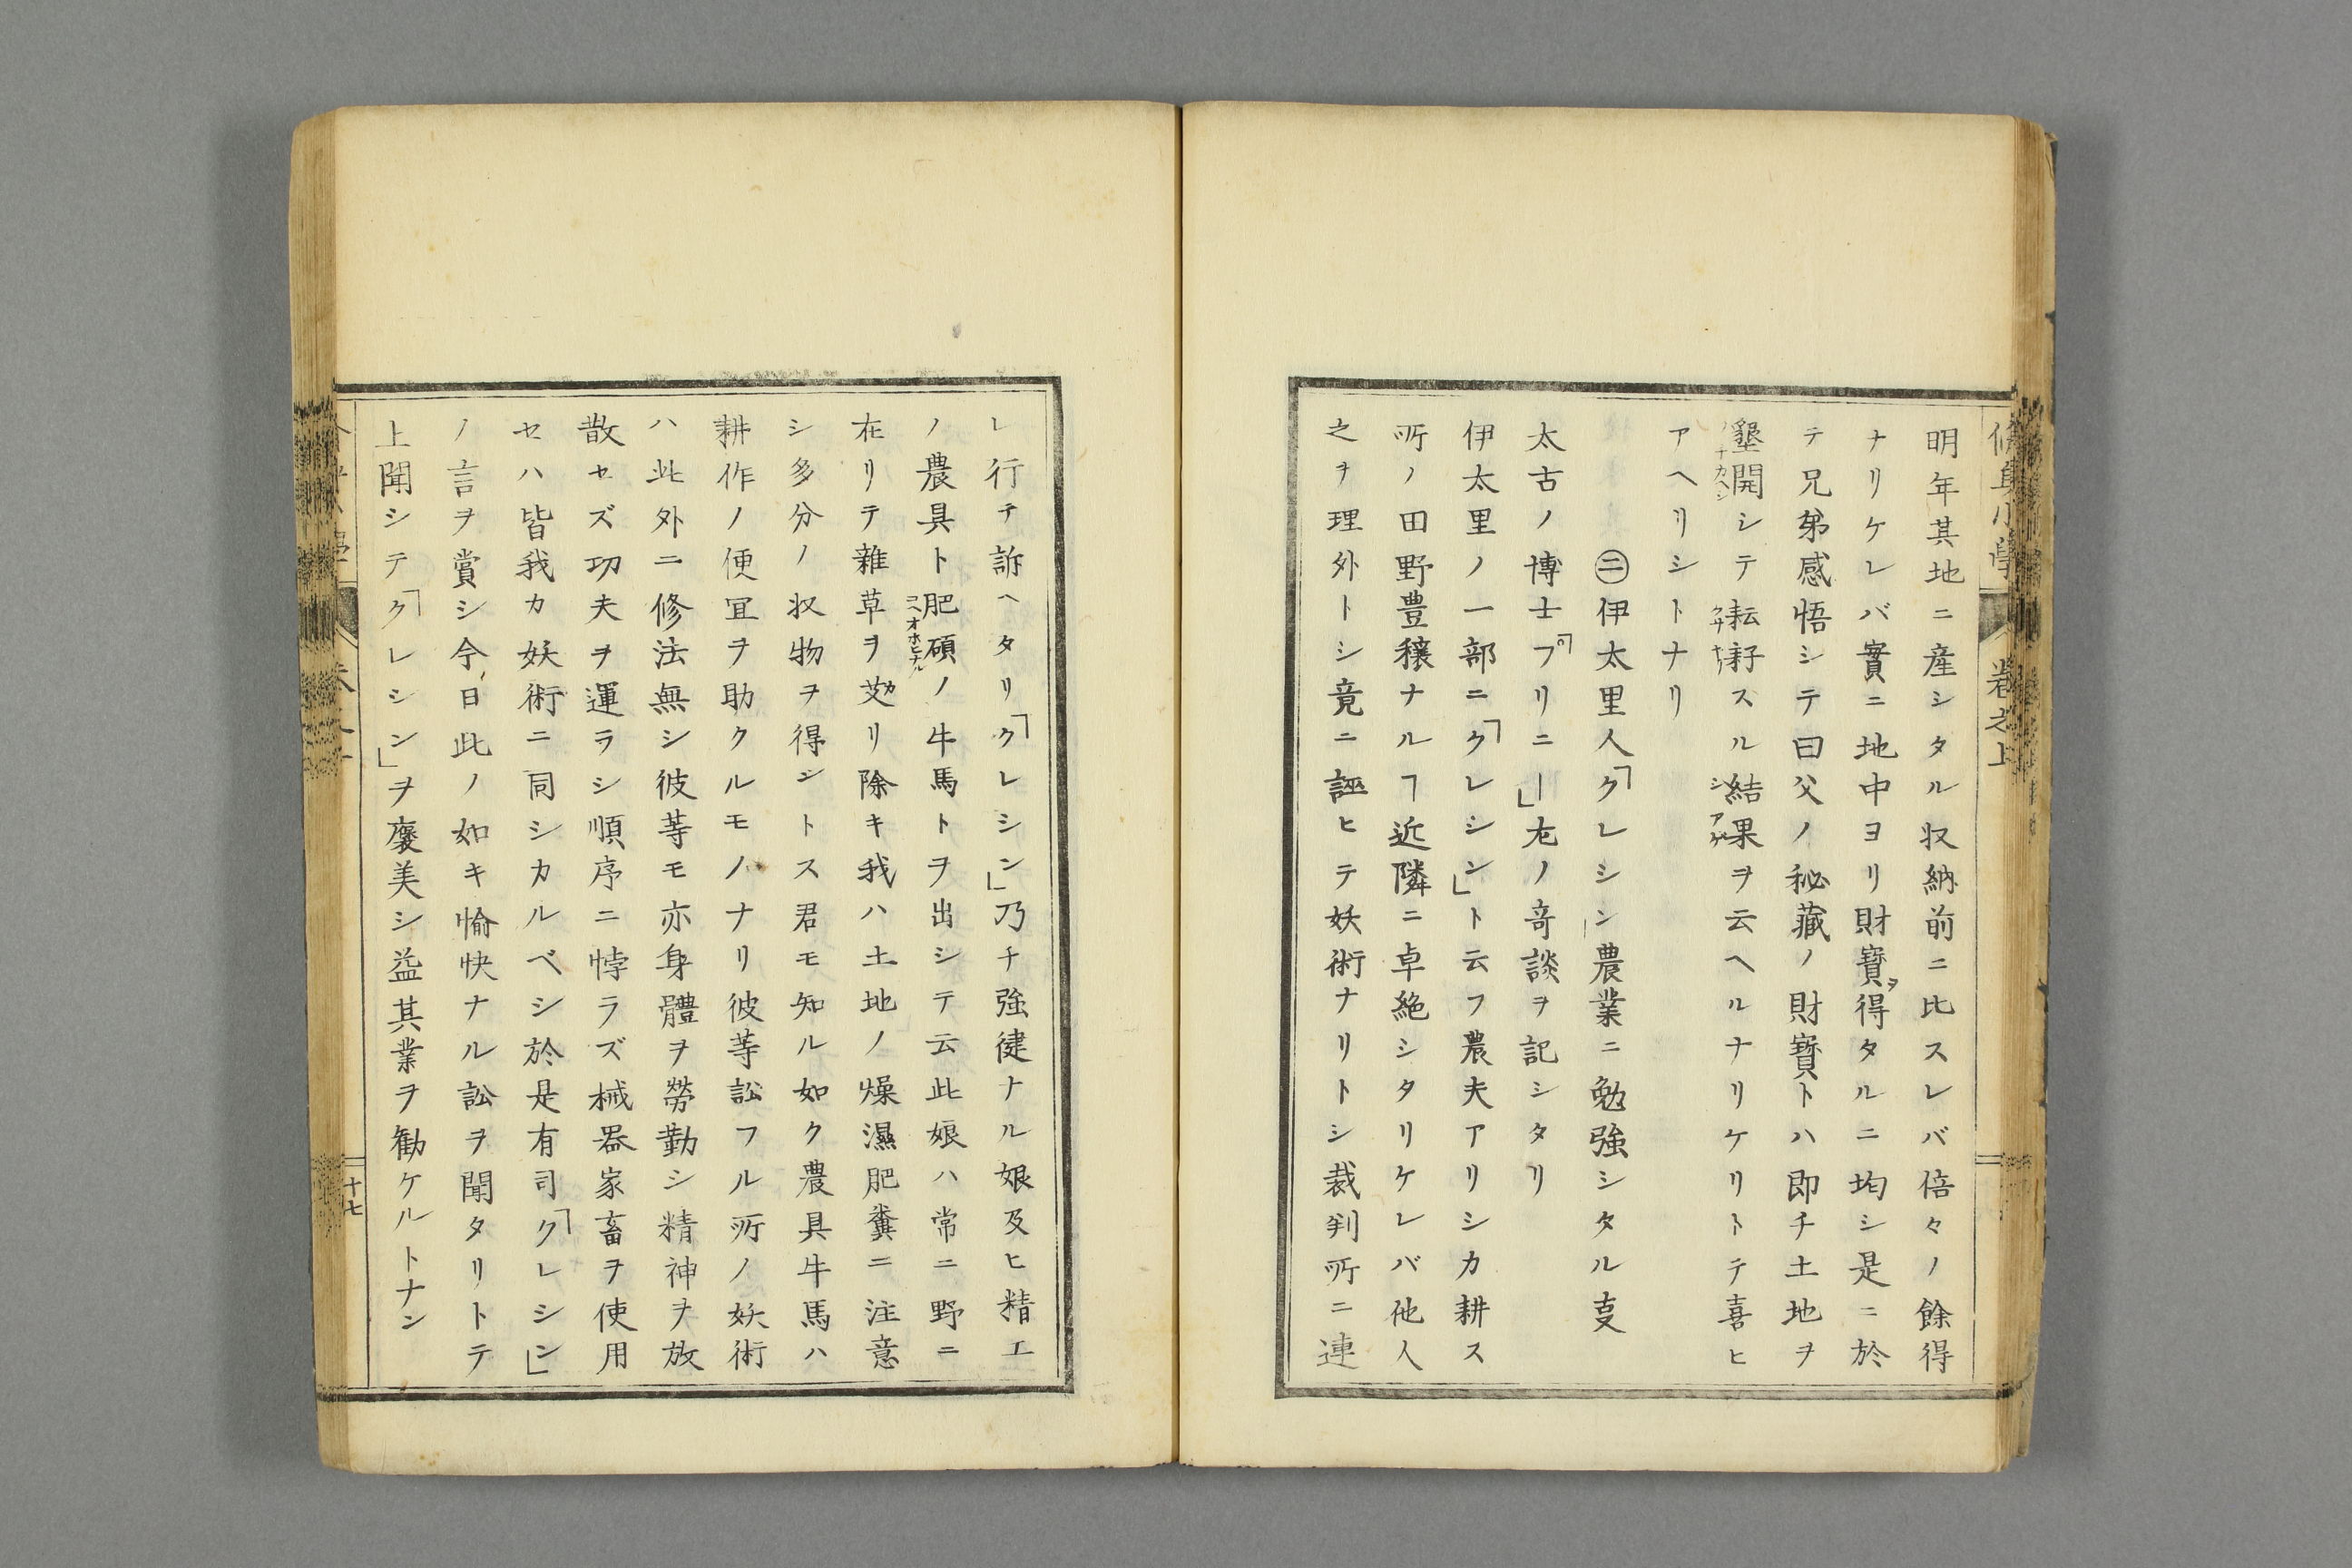 修身小學 卷之上
明年其地ニ産シタル収納前ニ比スレバ倍々ノ餘得
ナリケレバ實ニ地中ヨリ財寶ヲ得タルニ均シ是ニ於
テ兄弟感悟シテ曰父ノ秘藏ノ財寶トハ即チ土地ヲ
墾開シテ耘耔スル結果ヲ云ヘルナリケリトテ喜ヒ
アヘリシトナリ
㊁伊太里人「クレシン」農業ニ勉強シタル𠮷
太古ノ博士「プリニー」左ノ奇談ヲ記シタリ
伊太里ノ一部ニ「クレシン」ト云フ農夫アリシカ耕ス
所ノ田野豊穰ナルヿ近隣ニ卓絶シタリケレバ他人
之ヲ理外トシ竟ニ誣ヒテ妖術ナリトシ裁判所ニ連
レ行テ訴ヘタリ「クレシン」乃チ強健ナル娘及ヒ精工
ノ農具ト肥碩ノ牛馬トヲ出シテ云此娘ハ常ニ野ニ
在リテ雜草ヲ芟リ除キ我ハ土地ノ燥濕肥糞ニ注意
シ多分ノ収物ヲ得ントス君モ知ル如ク農具牛馬ハ
耕作ノ便冝ヲ助クルモノナリ彼等訟フル所ノ妖術
ハ此外ニ修法無シ彼等モ亦身體ヲ勞勤シ精神ヲ放
散セズ功夫ヲ運ラシ順序ニ悖ラズ械器家畜ヲ使用
セハ皆我カ妖術ニ同シカルベシ於是有司「クレシン」
ノ言ヲ賞シ今日此ノ如キ愉快ナル訟ヲ聞タリトテ
上聞シテ「クレシン」ヲ襃美シ益其業ヲ勧ケルトナン
十七